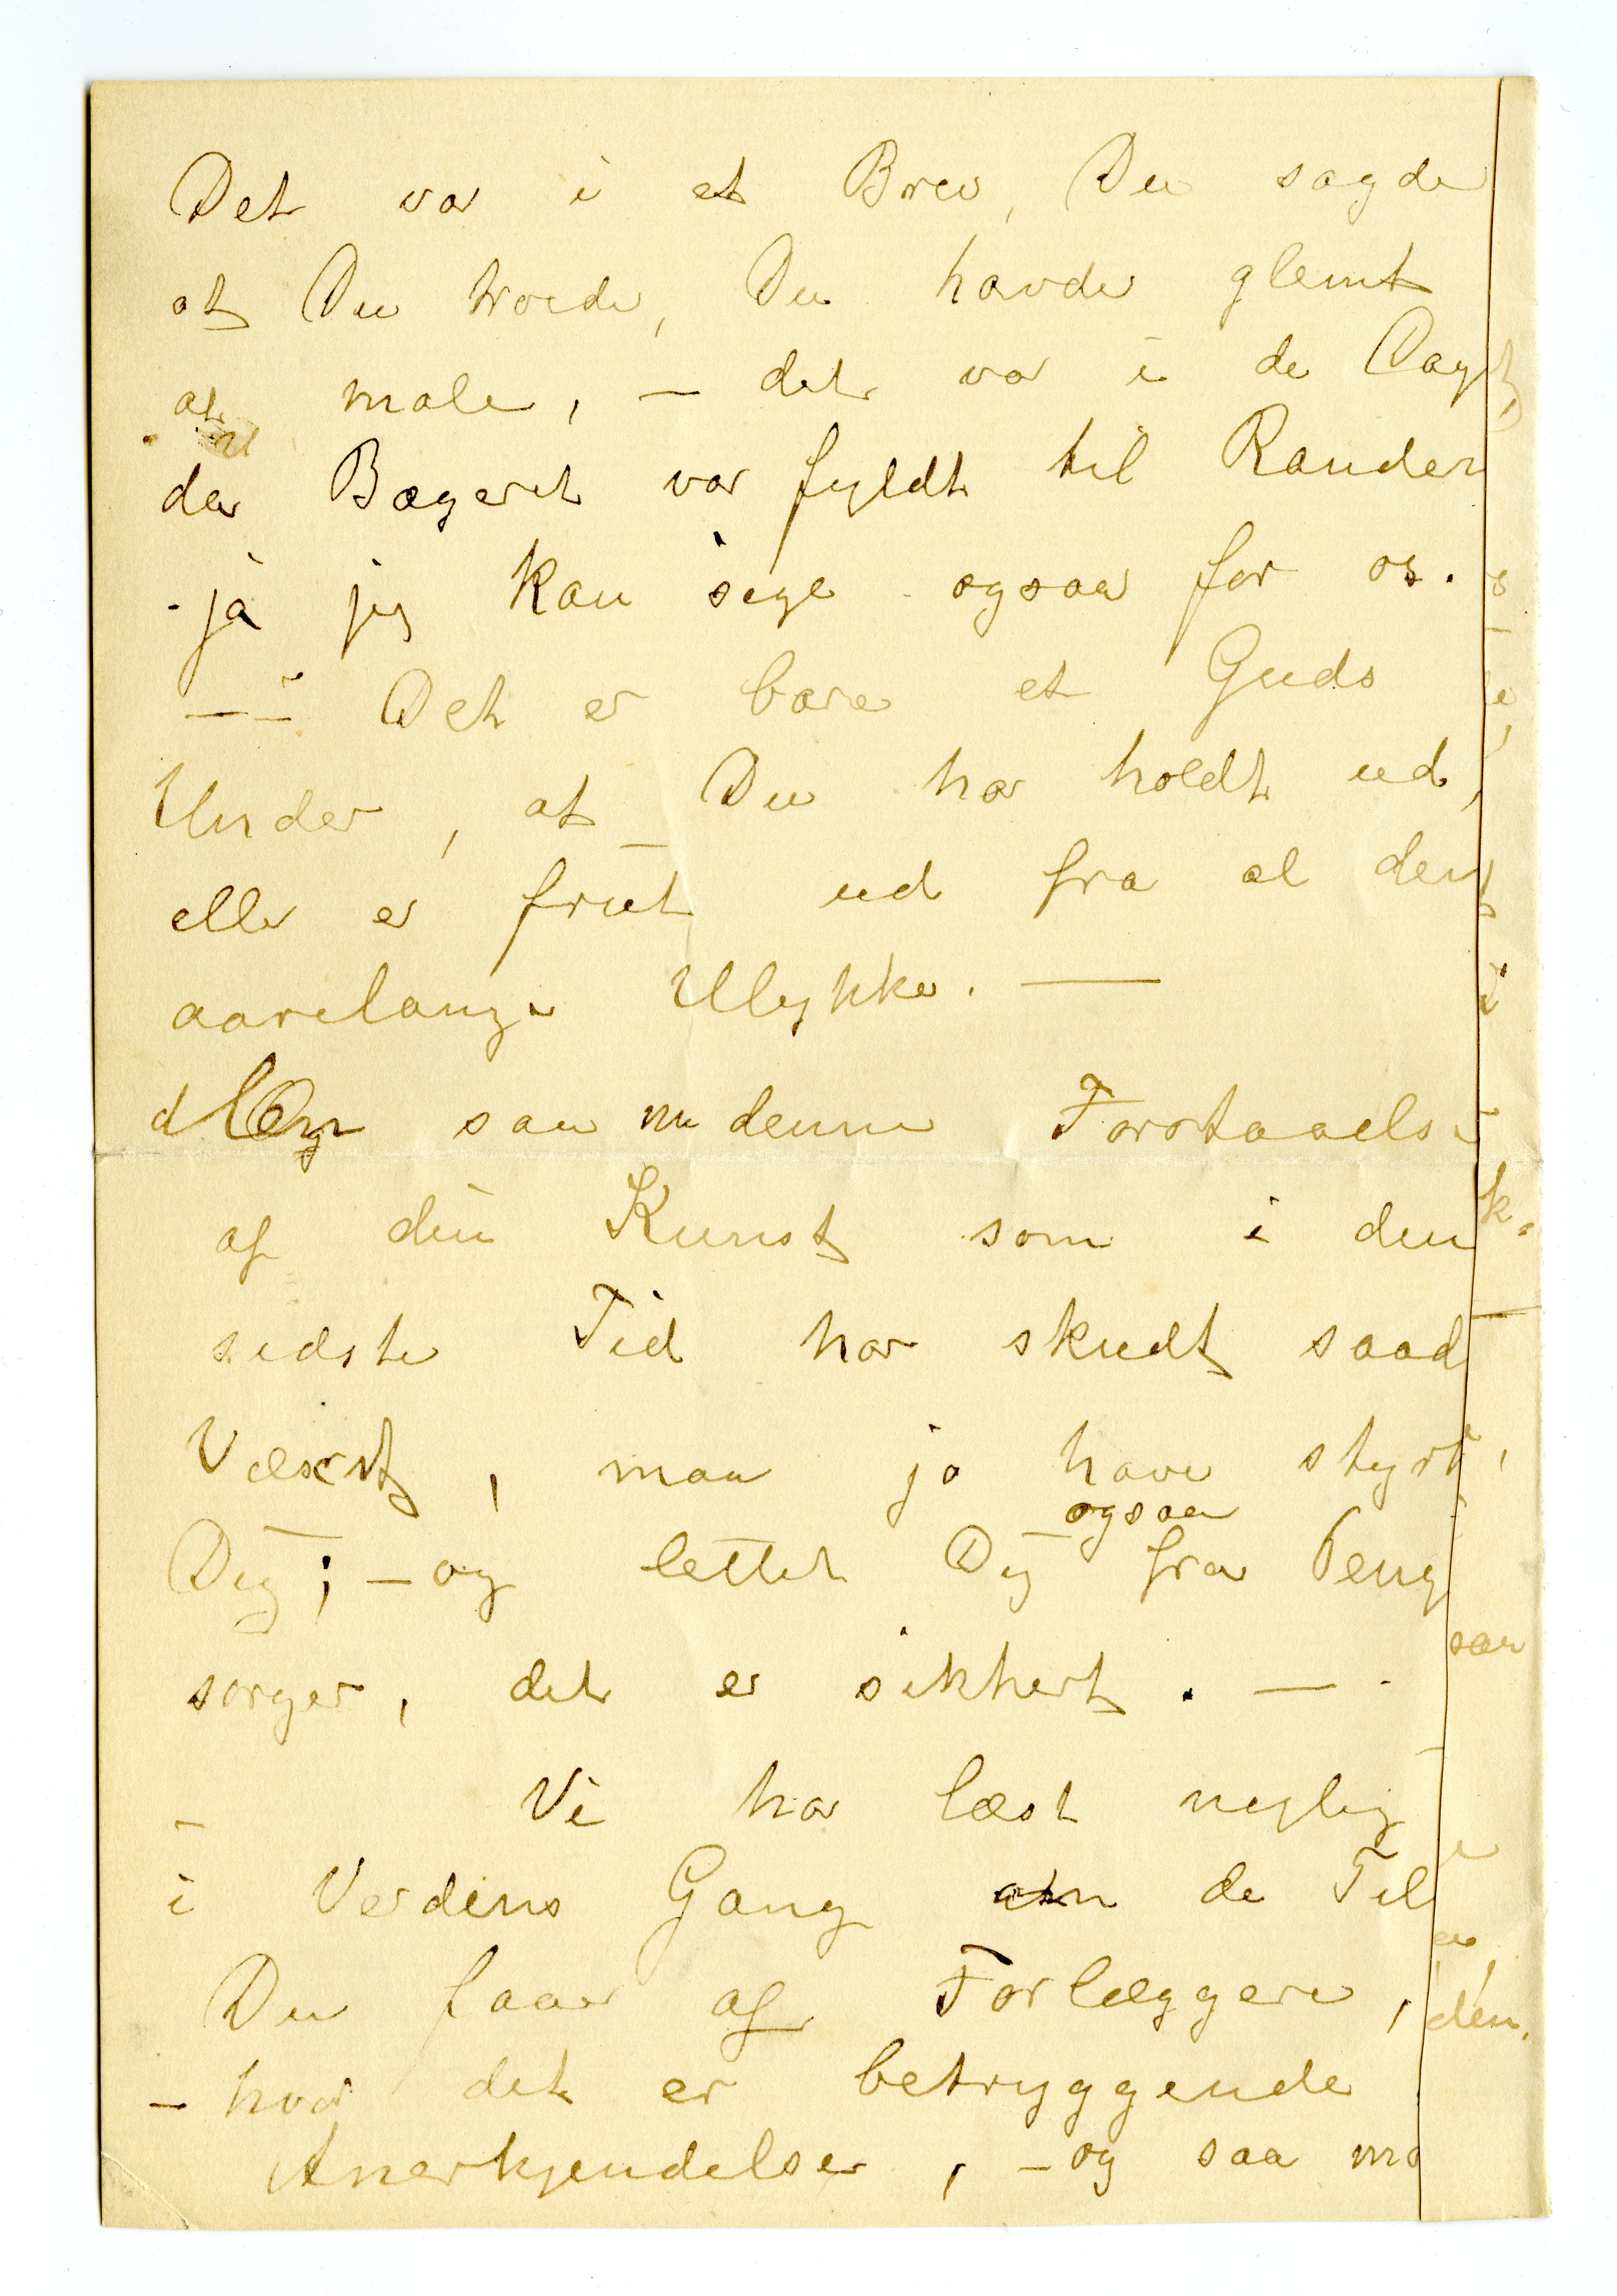 Det var i et Brev, Du sagde
at Du troede, Du havde glemt
at male, – det var i de Dag
da Bægeret var fyldt til Randen
- ja jeg kan sige - ogsaa for os.
—– Det er bare et Guds
Under, at Du har holdt ud,
eller er friet ud fra al den
aarelange Ulykke. —
Men saa nu denne Forstaaelse
af din Kunst som i den
sidste Tid har skudt saad
Væxst, maa jo have styrk
Dig; – og lettet Dig ogsaa fra Peng
sorger, det er sikkert. —
Vi har læst nylig
i Verdens Gang om de Til
Du faar af Forlæggere,
– hvor det er betryggende
Anerkjendelse, – og saa ma
k.
saa
den.